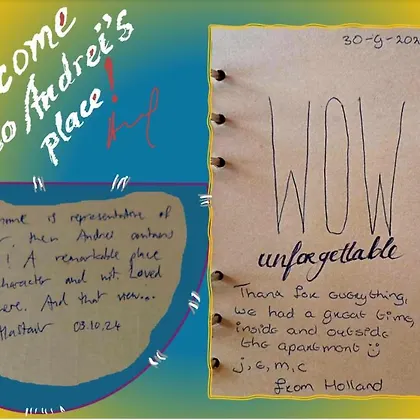 come
to Andrei's
place!
home is representative of
, then Andrei
! A remarkable place
character and well loved
here. And that view...
Alastair 03.10.24
30-9-202
WOW
unforgettable
Thank for everything,
we had a great time
inside and outside
the apartment
j, e, m, c
from Holland